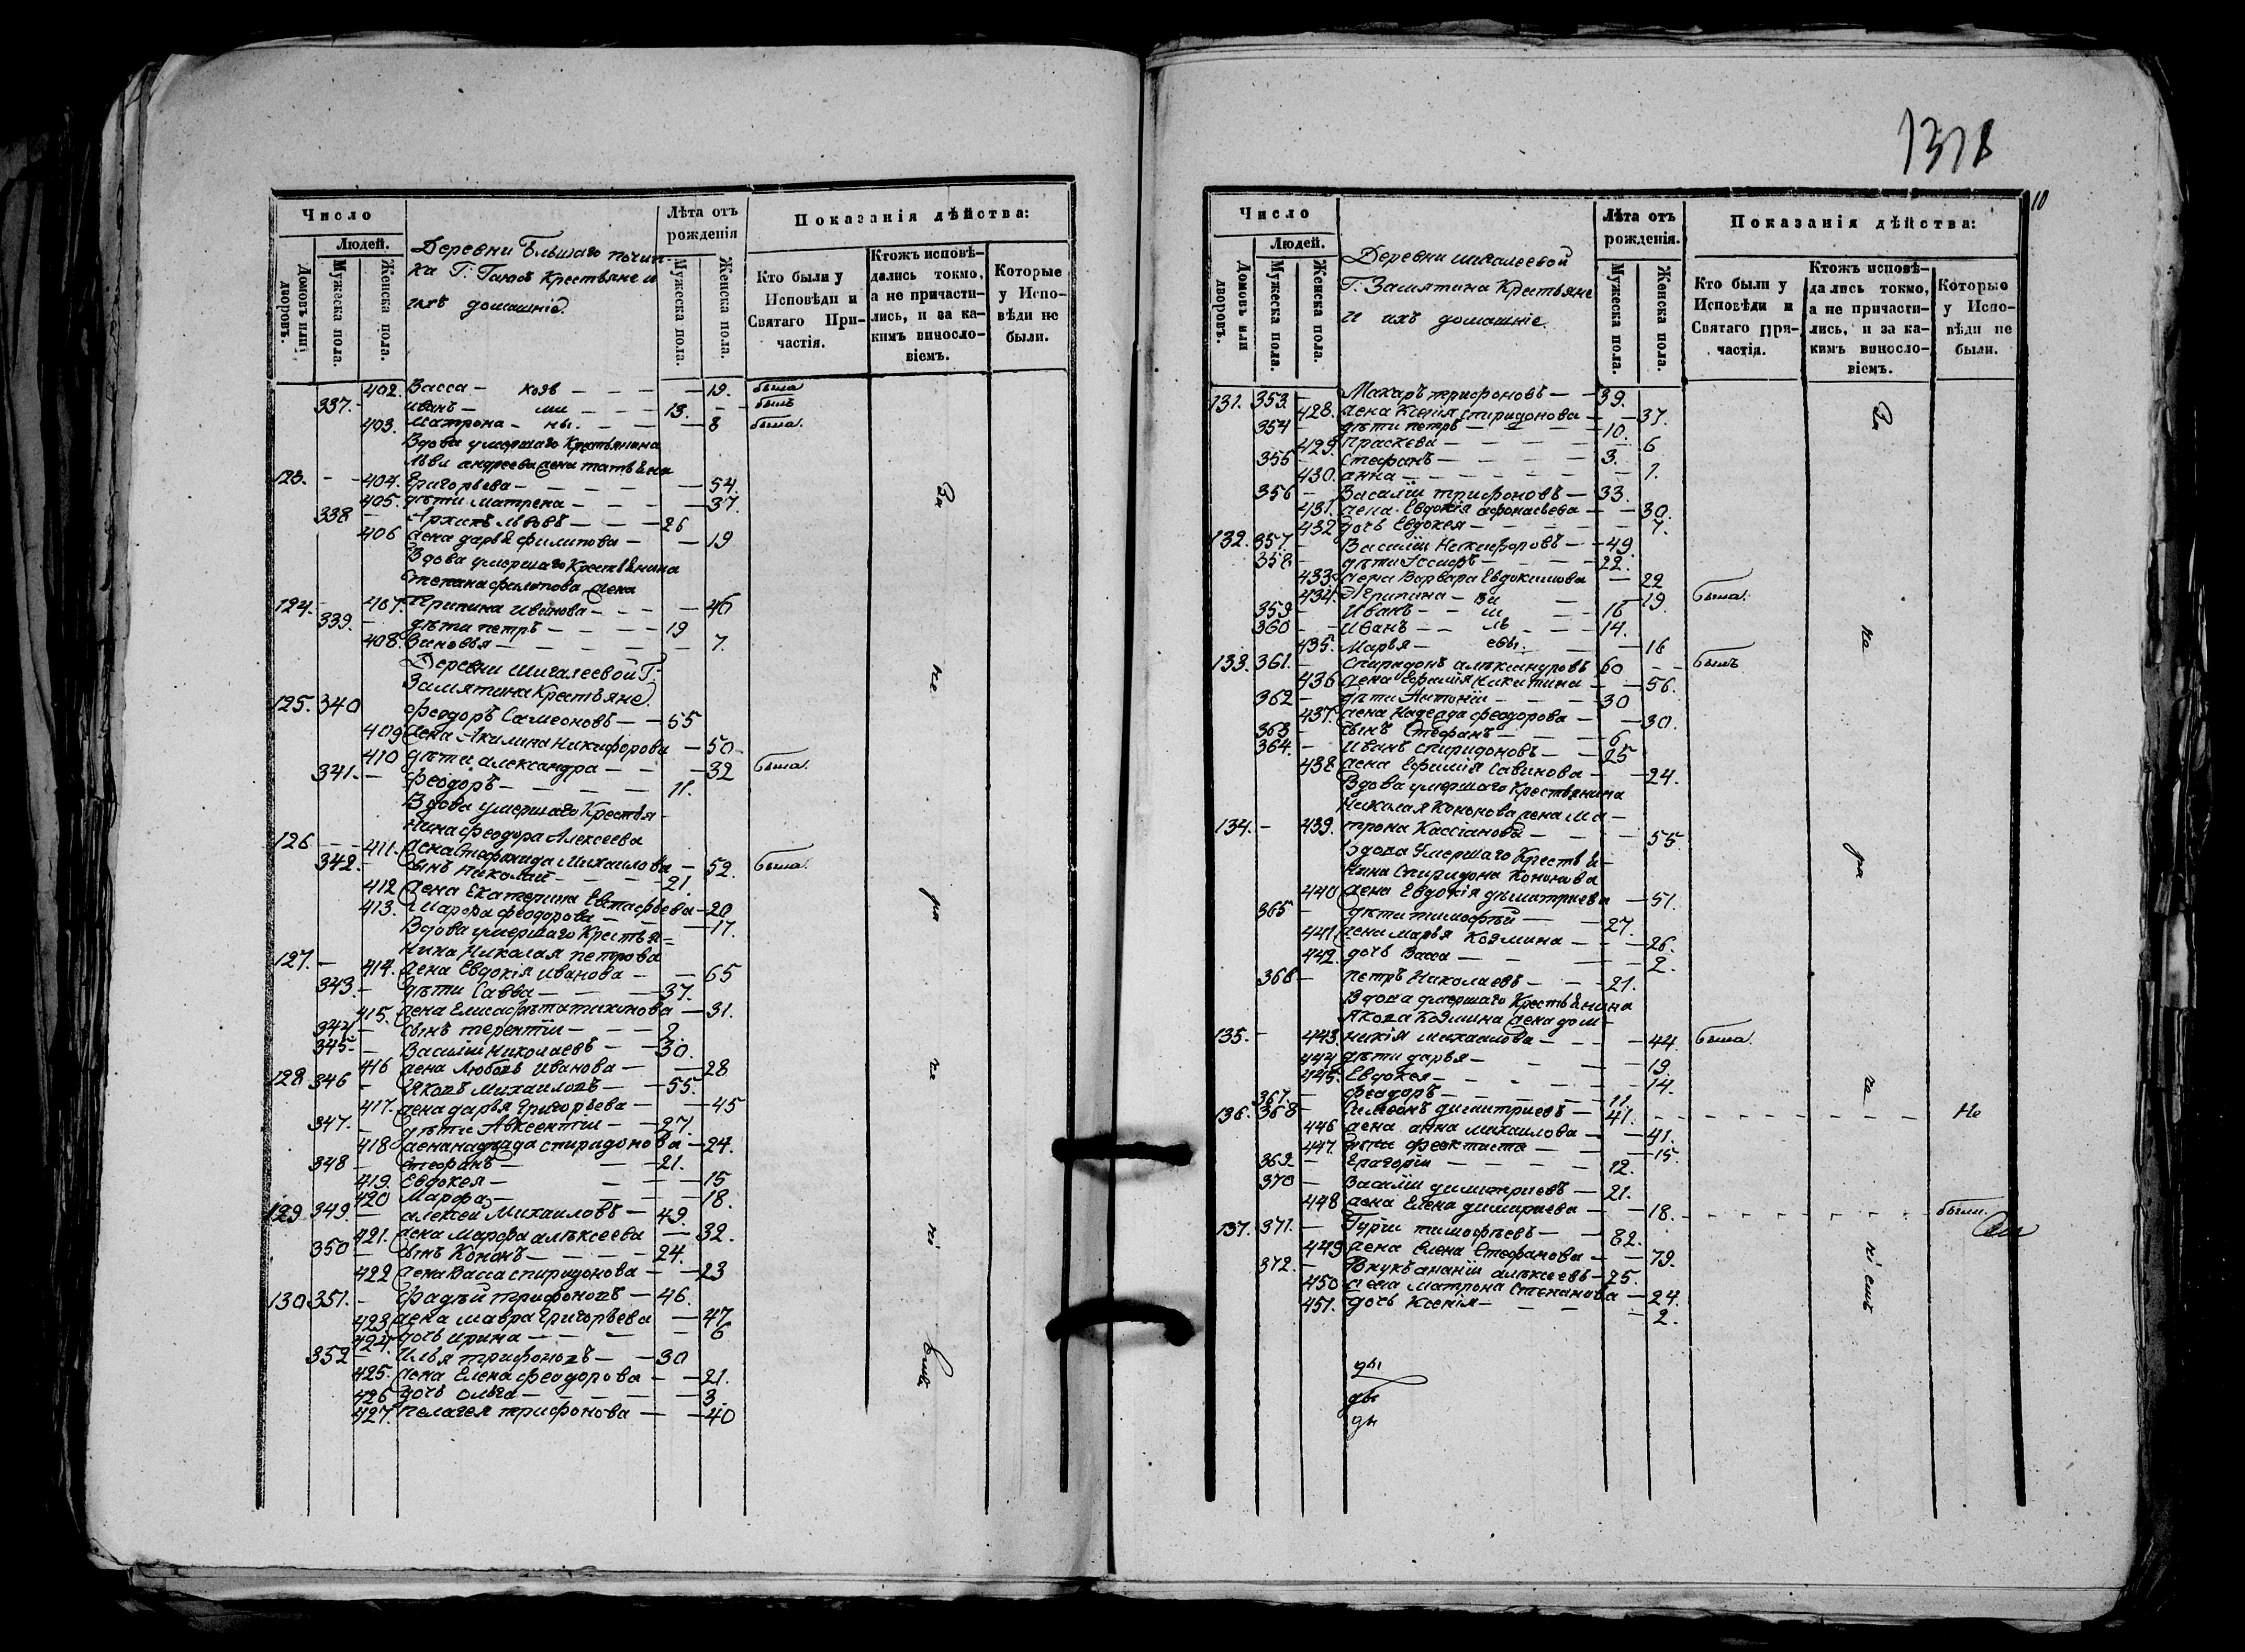 1318
10
Число
Людей.
Домовъ или дворовъ.
Мужеска пола.
Женска пола.
Деревни Бльшаго почин-
ка Г: Крестьяне и
ихъ домашніе.
Лѣта отъ рожденія
Мужеска пола.
Женска пола.
Показанія дѣйства:
Кто были у Исповѣди и Святаго При- частія.
Ктожъ исповѣ- дались токмо, а не причасти- лись, и за ка- кимъ винословіемъ.
Которые у Испо- вѣди не были.
402. Васса — — — — 19. была
337. Иванъ — — — 13. — былъ
403. Матрона — ны. — — 8 была.
Вдова умершаго Крестьянина
Льва андреева жена татьяна
123. — — 404. Григорьева — — — — 54.
405. дѣти матрена — — — 37.
338 — Архипъ Львовъ — — 26
406 жена дарья филипова — — 19
Вдова умершаго Крестьянина
Степана филипова жена
124. — 407. Ирипина иванова — — — 46
339. — дѣти петръ — — — 19
408. Зиновья — — — — 7.
Деревни Шигалеевой Г.
Замятина Крестьяне
125. 340 феодоръ Самеоновъ — — 55
409 жена Акилина Никифорова — 50
410 дѣти александра — — — 32 была.
341. — феодоръ — — — — 11.
Вдова умершаго Крестья-
нина феодора Алексеева
126 — — 411. жена Стефанида Михаилова — 52. была.
342. сынъ Николай — — — 21.
412 жена Екатерина Евстафьева — 20
413. Марфа феодорова — — — 17.
Вдова умершаго Крестья=
нина Николая петрова
127. — 414. жена Евдокія иванова — — 65
343. — дѣти Савва — — — 37.
415. жена — 31.
344. — сынъ терентіи — — — 2.
345. — Василіи Николаевъ — — 30.
416 жена Любовь Иванова — — 28
128 346 — Яковъ Михаиловъ — — 55.
417. жена дарья Григорьева — — 45
347. — дѣти Авксентіи — — 27.
418 жена надежда спиридонова — 24.
348 — Стефанъ — — — 21.
419. Евдокея — — — — 15
420 Марфа — — — — 18.
129 349. — алексеи Михаиловъ — 49.
421. жена марфа алѣксеева — 32.
350 — сынъ Кононъ — — — — 24.
422 жена Васса спиридонова — — 23
130 351. — Фадѣй трифоновъ — 46.
423. жена мавра Григорьева — 47.
424. дочь ирина — — — — 6
352 — Илья трифоновъ — — 30
425. жена Елена феодорова — — 21.
426 дочь ольга — — — — 3.
427. пелагея трифонова — — 40
За
не
ра
не
ні
Число
Людей.
Домовъ или дворовъ.
Мужеска пола.
Женска пола.
Деревни шигалеевой
Г: Замятина Крестьяне
и ихъ домашніе.
Лѣта отъ рожденія.
Мужеска пола.
Женска пола.
Показанія дѣйства:
Кто были у Исповѣди и Святаго При- частія.
Ктожъ исповѣ- дались токмо, а не причасти- лись, и за ка- кимъ винословіемъ.
Которые у Испо- вѣди не были.
131. 353. — Макаръ трифоновъ — 39.
428. жена Ксенія Спиридонова — — 37.
354 — дѣти петръ — — — — 10.
429. Праскева — — — — 6
355 — Стефанъ — — — — 3.
430. анна — — — — 1.
356 — Василіи трифоновъ — 33.
431. жена Евдокія афонасьева — — 30.
432 дочь Евдокея — — — — 7.
132. 357. — Василіи Никифоровъ — — 49.
358 — дѣти Іосифъ — — — 22.
433. жена Варвара Евдокимова — 22
434. Агрипина — — — 19 была.
359 — Иванъ — — — 16
360 — Иванъ — — — — 14.
435. Марья — евы. — — 16
133. 361. — Спиридонъ алѣксандровъ 60 — — былъ
436 жена Ефимія Никитина — — 56.
362 — дѣти Антоніи — — — 30
437. жена Надежда феодорова — — 30.
363 — сынъ Стефанъ — — — 6
364. — Иванъ спиридоновъ — — 25
438 жена Ефимія Савинова — — 24.
Вдова умершаго Крестьянина
Николая Кононова жена Ма-
134. — 439. трона Кассіанова — — — 55.
Вдова Умершаго Крестья-
нина Спиридона Кононова
440 жена Евдокія дѣмитриева — 51.
365 — дѣти тимофѣй — — 27.
441. жена марья Козмина — — 26.
442. дочь Васса — — — — 2.
366 — петръ Николаевъ — — 21.
Вдова умершаго Крестьянина
Якова Козмина жена дом-
135. — 443. никія михаилова — — — 44. была.
444 дѣти дарья — — — 19.
445. Евдокея — — — — 14.
367. — феодоръ — — — — 11.
136. 368 — Симеонъ димитриевъ — 41. — — — — — — — — — Не
446 жена анна михаилова — — 41.
447. дѣти феоктиста — — — 15.
369 — Григоріи — — — — 12.
370 — Василіи димитриевъ — 21.
448 жена Елена — — 18. — — — — — — — — были.
137. 371. — Гуріи тимофѣевъ — — 82.
449 жена Елена Стефанова — — 79.
372. — Внукъ ананіи алѣксеевъ — 25.
450 жена матрона Степанова — 24.
451. дочь Ксенія — — — — 2.
За
не
ра
че
ды
ды
ды